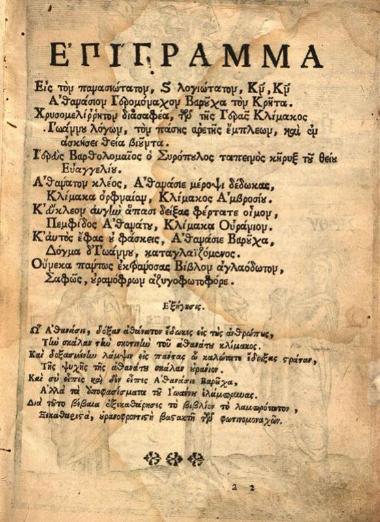 ΕΠΙΓΡΑΜΜΑ
Εἰς τὸν πανοσιώτατον, ϗ λογιώτατον, Κύ, Κύ
Ἀθανάσιον Ἱερομόναχον Βαρύχα τὸν Κρῆτα.
Χρυσομελίρρητον διασαφέα, τῶν τῆς Ἱερᾶς Κλίμακος
Ἰωάννου λόγων, τὸν πάσης ἀρετῆς ἔμπλεων, καὶ ἐν
ἀσκήσει θεία βιοῦντα.
Ἱερεὺς Βαρθολομαῖος ὁ Συρόπυλος ταπεινὸς κῆρυξ τοῦ θείου
Εὐαγγελίου.
Ἀθάνατον κλέος, Ἀθανάσιε μέροψι δέδωκας,
Κλίμακα ὀρφναίαν, Κλίμακος Ἀμβροσίου.
Κεὐκλεον αὐγὴν ἅπασι δείξας φέρτατε οἶμον,
Πεμφίδος Ἀθανάτου, Κλίμακα Οὐράνιον.
Καὐτὸς ἔφας οὐ φάσκεις, Ἀθανάσιε Βαρύχα,
Δόγμα δ' Ἰωάννου, καταγλαϊζόμενος.
Οὕνεκα πάντως ἐκφανόσας Βίβλον ἀγλαόδωτον,
Σαφῶς, οὐρανόφρων ἀζυγοφωτοφόρε.
Ἐξήγησις.
Ὦ Ἀθανάσιε, δόξαν ἀθάνατον ἔδωκες εἰς τοὺς ἀνθρώπους,
Τὴν σκάλαν τὴν σκοτεινὴν τοῦ ἀθανάτου κλίμακος.
Καὶ δοξασμένην λάμψιν εἰς πάντας ὦ καλώτατε ἔδειξας στράταν,
Τῆς ψυχῆς τῆς ἀθανάτου σκάλαν οὐράνιον.
Καὶ σὺ εἶπες καὶ δὲν εἶπες Ἀθανάσιε Βαρύχα,
Ἀλλὰ τὰ ὑποφασίσματα τοῦ Ἰωάννου ἐλάμπρυνας.
Διὰ τοῦτο βέβαια ἐξεκαθάρησες τὸ βιβλίον τὸ λαμπρότατον,
Ξεκαθαριστὰ, οὐρανοφροντιστὴ βαστακτὴ τῶν φωτιζομοναχῶν.
a 2